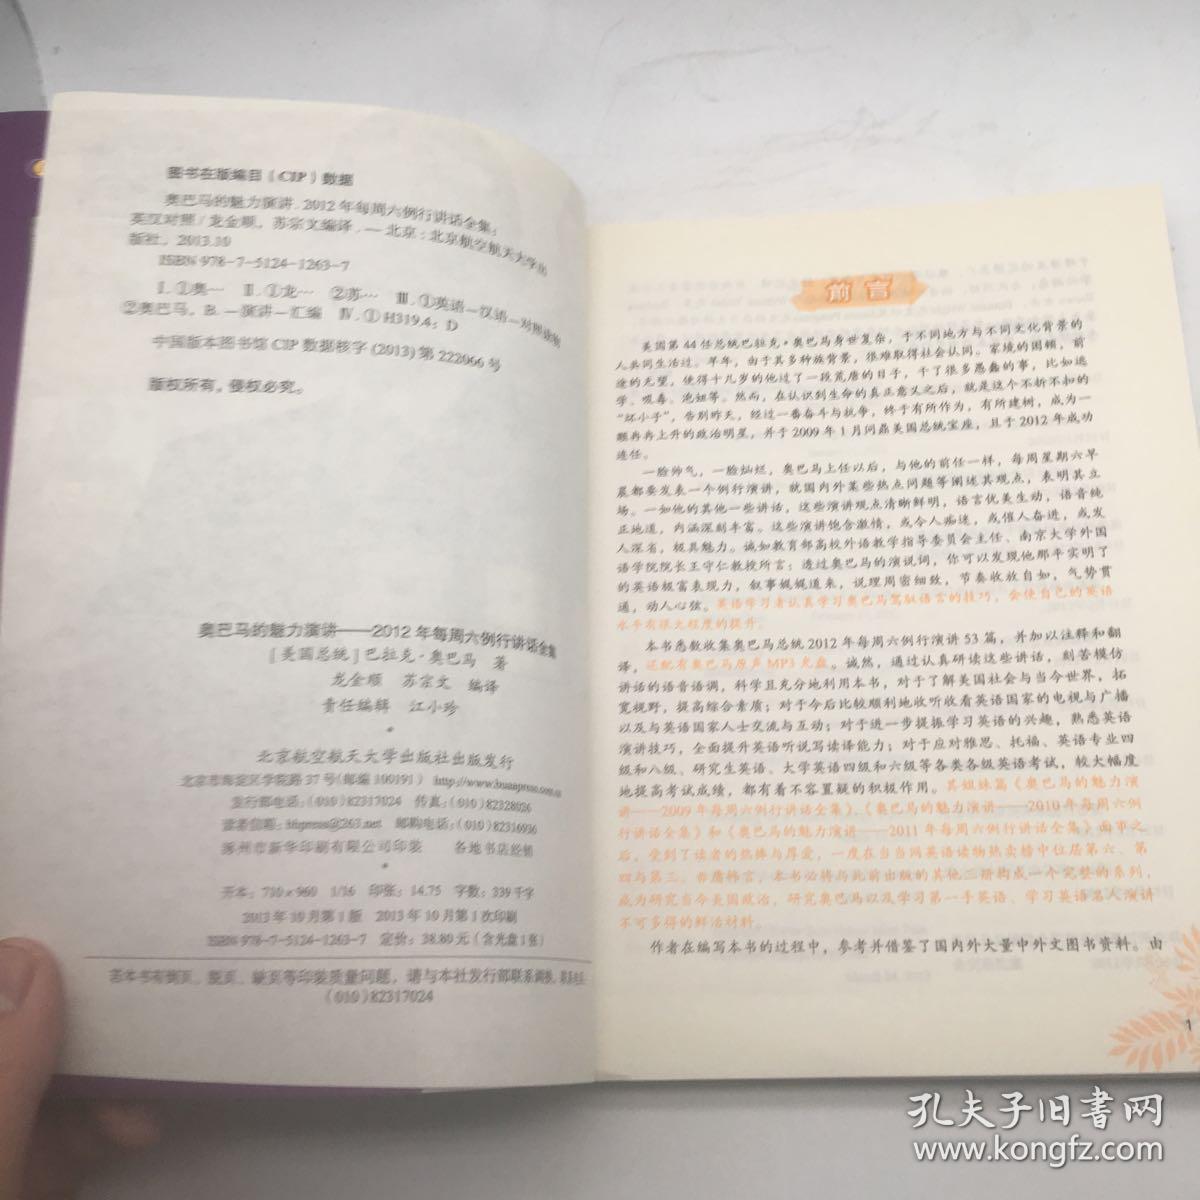 图书在版编目(CIP)数据
奥巴马的魅力演讲.2012年每周六例行讲话全集:
英汉对照/龙金顺,苏宗文编译.—北京:北京航空航天大学出
版社,2013.10
ISBN 978-7-5124-1263-7
Ⅰ.①奥… Ⅱ.①龙… ②苏… Ⅲ.①英语—汉语—对照读物
②奥巴马,B.—演讲—汇编 Ⅳ.①H319.4:D
中国版本图书馆CIP数据核字(2013)第222066号
版权所有,侵权必究。
奥巴马的魅力演讲——2012年每周六例行讲话全集
[美国总统]巴拉克·奥巴马 著
龙金顺 苏宗文 编译
责任编辑 江小珍
*
北京航空航天大学出版社出版发行
北京市海淀区学院路37号(邮编100191) http://www.buaapress.com.cn
发行部电话:(010)82317024 传真:(010)82328026
读者信箱:bhpress@263.net 邮购电话:(010)82316936
涿州市新华印刷有限公司印装 各地书店经销
*
开本:710×960 1/16 印张:14.75 字数:339千字
2013年10月第1版 2013年10月第1次印刷
ISBN 978-7-5124-1263-7 定价:38.80元(含光盘1张)
若本书有倒页、脱页、缺页等印装质量问题,请与本社发行部联系调换。联系电话:
(010)82317024
前言
美国第44任总统巴拉克·奥巴马身世复杂,于不同地方与不同文化背景的
人共同生活过。早年,由于其多种族背景,很难取得社会认同。家境的困顿,前
途的无望,使得十几岁的他过了一段荒唐的日子,干了很多愚蠢的事,比如逃
学、吸毒、泡妞等。然而,在认识到生命的真正意义之后,就是这个不折不扣的
“坏小子”,告别昨天,经过一番奋斗与抗争,终于有所作为,有所建树,成为一
颗冉冉上升的政治明星,并于2009年1月问鼎美国总统宝座,且于2012年成功
连任。
一脸帅气,一脸灿烂,奥巴马上任以后,与他的前任一样,每周星期六早
晨都要发表一个例行演讲,就国内外某些热点问题等阐述其观点,表明其立
场。一如他的其他一些讲话,这些演讲观点清晰鲜明,语言优美生动,语音纯
正地道,内涵深刻丰富。这些演讲饱含激情,或令人痴迷,或催人奋进,或发
人深省,极具魅力。诚如教育部高校外语教学指导委员会主任、南京大学外国
语学院院长王守仁教授所言:透过奥巴马的演说词,你可以发现他那平实明了
的英语极富表现力,叙事娓娓道来,说理周密细致,节奏收放自如,气势贯
通,动人心弦。英语学习者认真学习奥巴马驾驭语言的技巧,会使自己的英语
水平有很大程度的提升。
本书悉数收集奥巴马总统2012年每周六例行演讲53篇,并加以注释和翻
译,还配有奥巴马原声MP3光盘。诚然,通过认真研读这些讲话,刻苦模仿
讲话的语音语调,科学且充分地利用本书,对于了解美国社会与当今世界,拓
宽视野,提高综合素质;对于今后比较顺利地收听收看英语国家的电视与广播
以及与英语国家人士交流与互动;对于进一步提振学习英语的兴趣,熟悉英语
演讲技巧,全面提升英语听说写读译能力;对于应对雅思、托福、英语专业四
级和八级、研究生英语、大学英语四级和六级等各类各级英语考试,较大幅度
地提高考试成绩,都有着不容置疑的积极作用。其姐妹篇《奥巴马的魅力演
讲——2009年每周六例行讲话全集》、《奥巴马的魅力演讲——2010年每周六例
行讲话全集》和《奥巴马的魅力演讲——2011年每周六例行讲话全集》面市之
后,受到了读者的热捧与厚爱,一度在当当网英语读物热卖榜中位居第六、第
四与第三。毋庸怖言,本书必将与此前出版的其他三册构成一个完整的系列,
成为研究当今美国政治,研究奥巴马以及学习第一手英语、学习英语名人演讲
不可多得的鲜活材料。
作者在编写本书的过程中,参考并借鉴了国内外大量中外文图书资料。由
1
孔夫子旧书网
www.kongfz.com